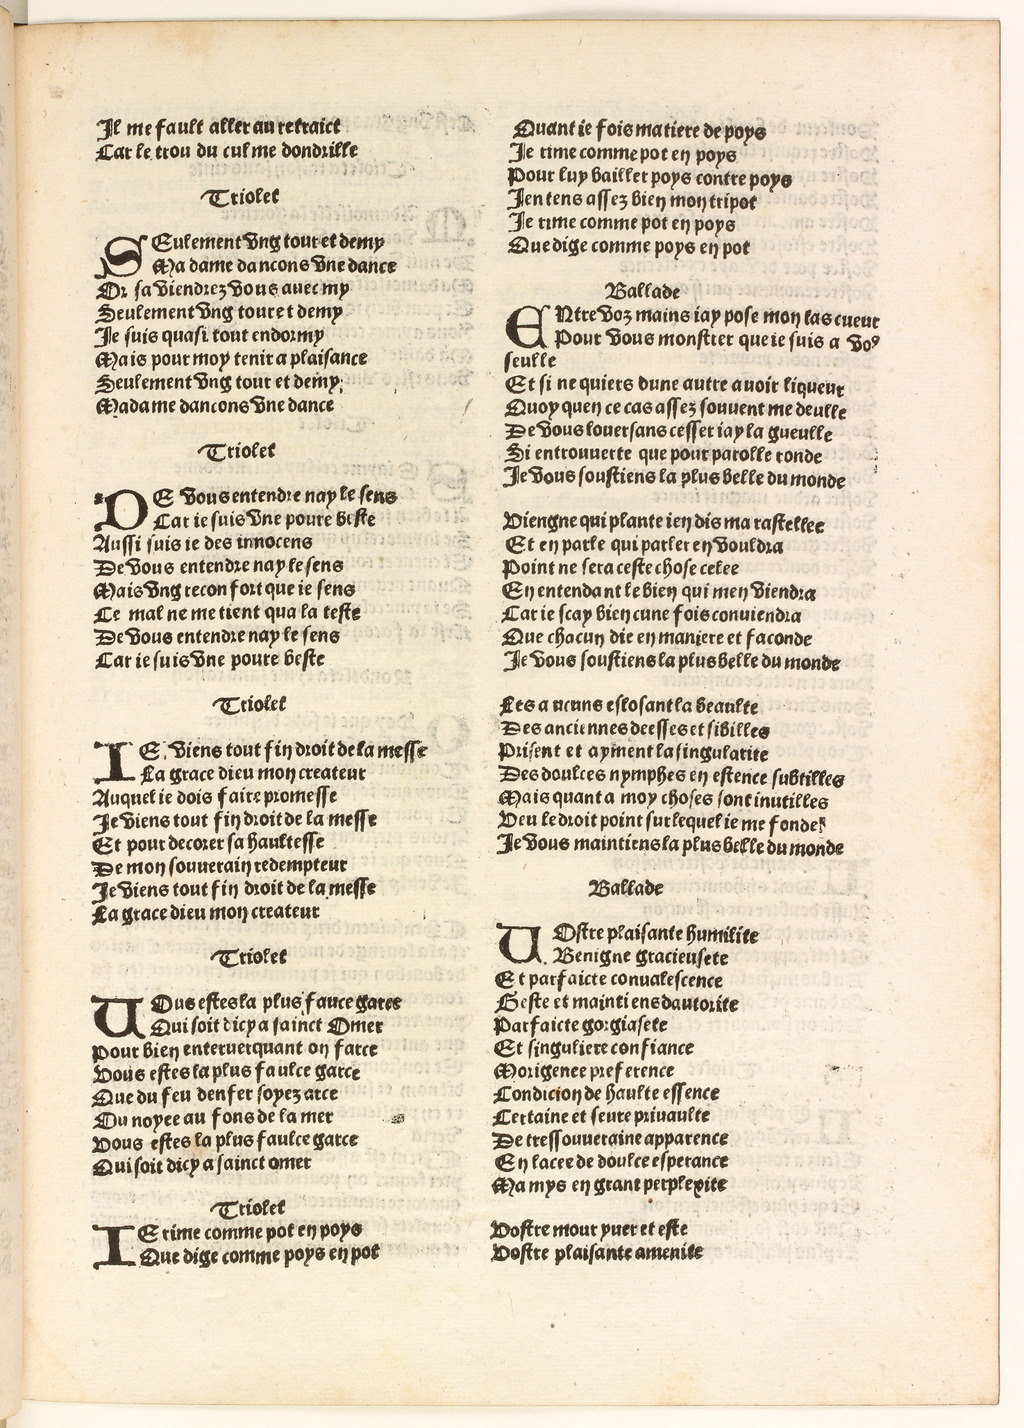 Il me fault aller au retraict
Car le trou du cul me dondrille
Triolet
SEulement vng tour et demy
Ma dame dancons vne dance
Or sa viendrez vous auec my
Seulement vng tour et demy
Je suis quasi tout endormy
Mais pour moy tenir a plaisance
Seulement vng tour et demy
Madame dancons vne dance
Triolet
DE vous entendre nay le sens
Car ie suis vne poure beste
Aussi suis ie des innocens
De vous entendre nay le sens
Mais vng reconfort que ie sens
Ce mal ne me tient qua la teste
De vous entendre nay le sens
Car ie suis vne poure beste
Triolet
IE viens tout fin droit de la messe
La grace dieu mon createur
Auquel ie dois faire promesse
Je viens tout fin droit de la messe
Et pour decorer sa haultesse
De mon souuerain redempteur
Je viens tout fin droit de la messe
La grace dieu mon createur
Triolet
VOus estes la plus fauce garce
Qui soit dicy a sainct Omer
Pour bien enteruer quant on farce
Vous estes la plus faulce garce
Que du feu denfer soyez arce
Ou noyee au fons de la mer
Vous estes la plus faulce garce
Qui soit dicy a sainct omer
Triolet
IE rime comme pot en poys
Que dige comme poys en pot
Quant ie fois matiere de poys
Je rime comme pot en poys
Pour luy bailler poys contre poys
Jentens assez bien mon tripot
Je rime comme pot en poys
Que dige comme poys en pot
Ballade
ENtre voz mains iay pose mon las cueur
Pour vous monstrer que ie suis a voꝰ
seulle
Et si ne quiers dune autre auoir liqueur
Quoy quen ce cas assez souuent me deulle
De vous louer sans cesser iay la gueulle
Si entrouuerte que pour parolle ronde
Je vous soustiens la plus belle du monde
Viengne qui plante ien dis ma rastellee
Et en parle qui parler en vouldra
Point ne sera ceste chose celee
En entendant le bien qui men viendra
Car ie scay bien cune fois conuiendra
Que chacun die en maniere et faconde
Je vous soustiens la plus belle du monde
Les aucuns eslosant la beaulte
Des anciennes deesses et sibilles
Prisent et ayment la singularite
Des doulces nymphes en essence subtilles
Mais quant a moy choses sont inutilles
Veu le droit point sur lequel ie me fonde
Je vous maintiens la plus belle du monde
Ballade
VOstre plaisante humilite
Benigne gracieusete
Et parfaicte conualescence
Geste et maintiens dautorite
Parfaicte gorgiasete
Et singuliere confiance
Morigenee preference
Condicion de haulte essence
Certaine et seure priuaulte
De tressouueraine apparence
En lacee de doulce esperance
Ma mys en grant perplexite
Vostre mour yuer et este
Vostre plaisante amenite